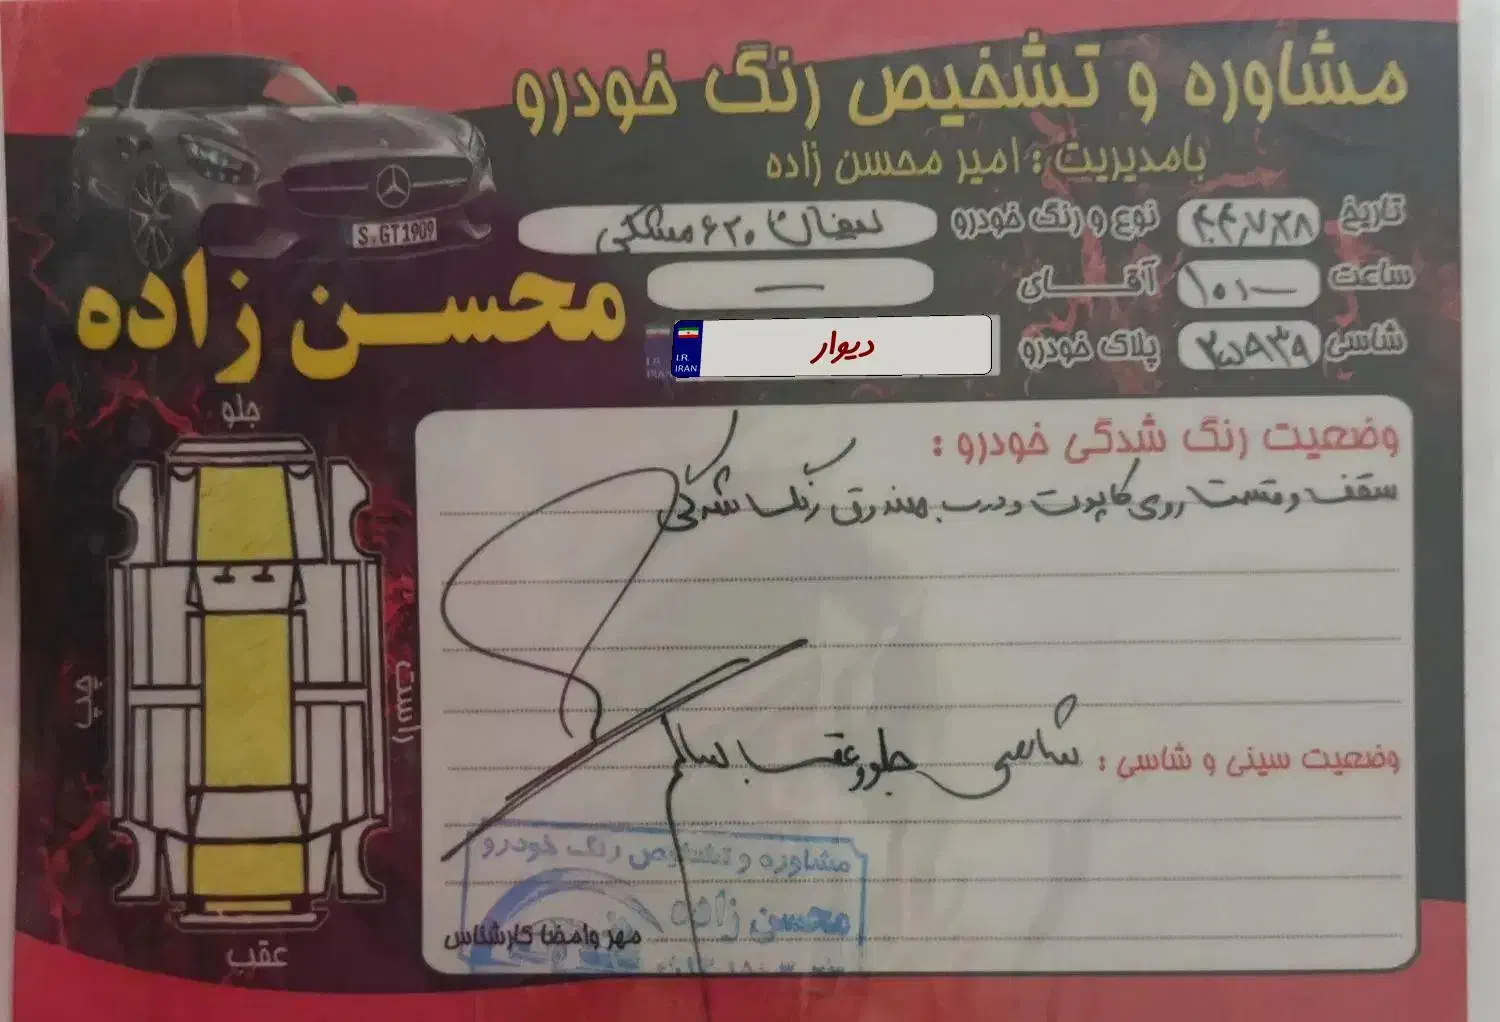 مشاوره و تشخیص رنگ خودرو
بامدیریت : امیر محسن زاده
تاریخ ۴۰۴٫۷٫۲۸ نوع و رنگ خودرو لیفان ۶۲۰ مشکی
ساعت ۱۰۱۰ آقـــای —
شاسی پلاک خودرو دیوار
I.R.
IRAN
S.GT1909
محسن زاده
جلو
چپ
راست
عقب
وضعیت رنگ شدگی خودرو :
سقف و قسمت روی کاپوت و درب صندوق رنگ شدگی
وضعیت سینی و شاسی : شاسی جلو و عقب سالم
مشاوره و تشخیص رنگ خودرو
محسن زاده
مهر وامضا کارشناس